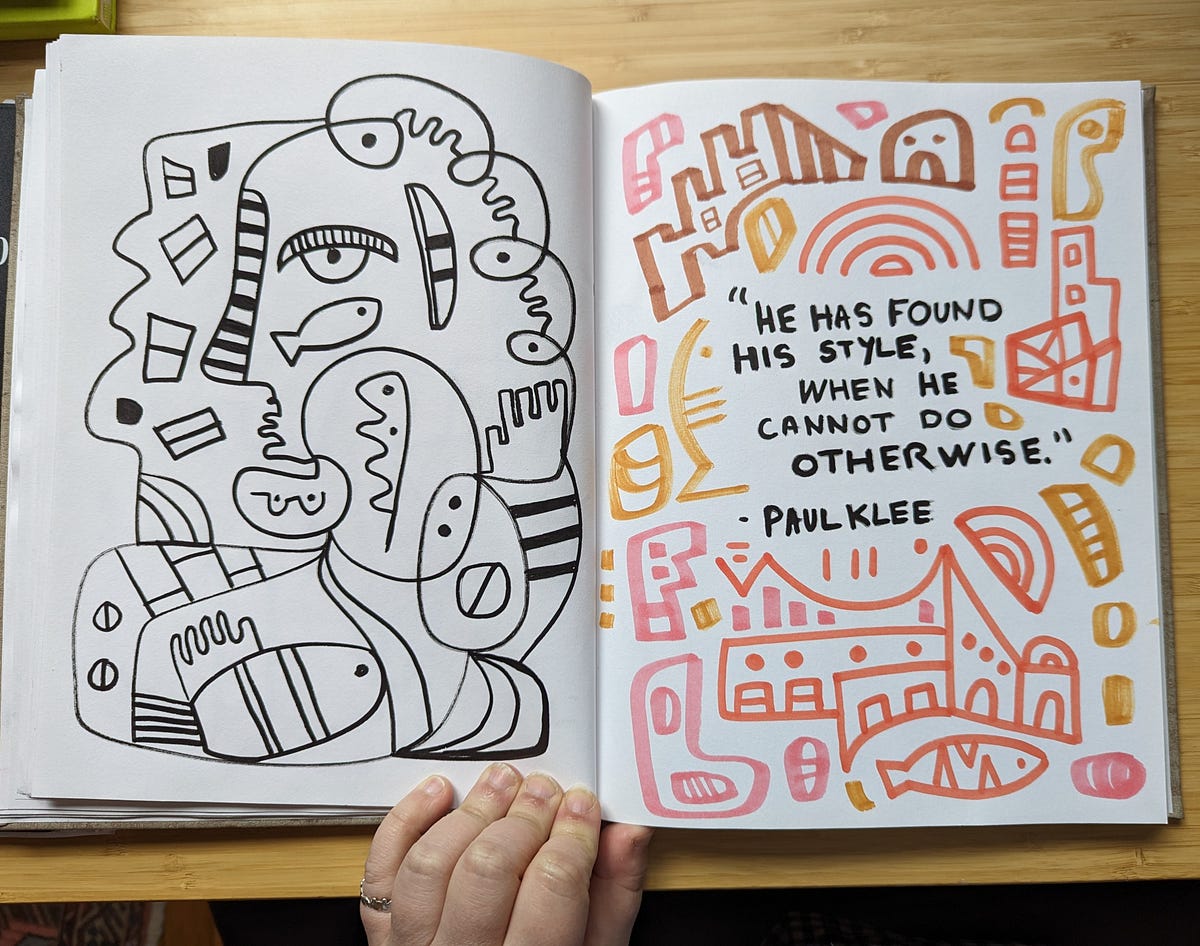 "HE HAS FOUND
HIS STYLE,
WHEN HE
CANNOT DO
OTHERWISE."
- PAUL KLEE